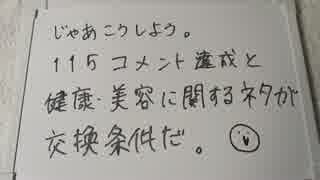 じゃあこうしよう。
115コメント達成と
健康・美容に関するネタが
交換条件だ。